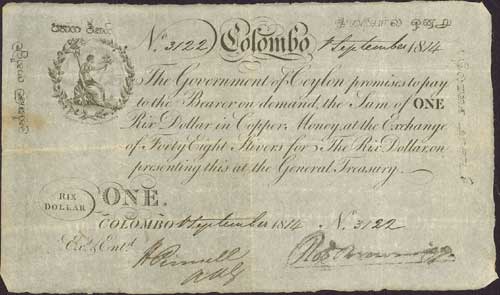 No. 3122 Colombo 1 September 1814
The Government of Ceylon promises to pay
to the Bearer on demand, the Sum of ONE
Rix Dollar in Copper Money, at the Exchange
of Forty Eight Stivers for The Rix Dollar, on
presenting this at the General Treasury.
RIX
DOLLAR
ONE.
COLOMBO 1 September 1814 No. 3122
Ex. & Entd.